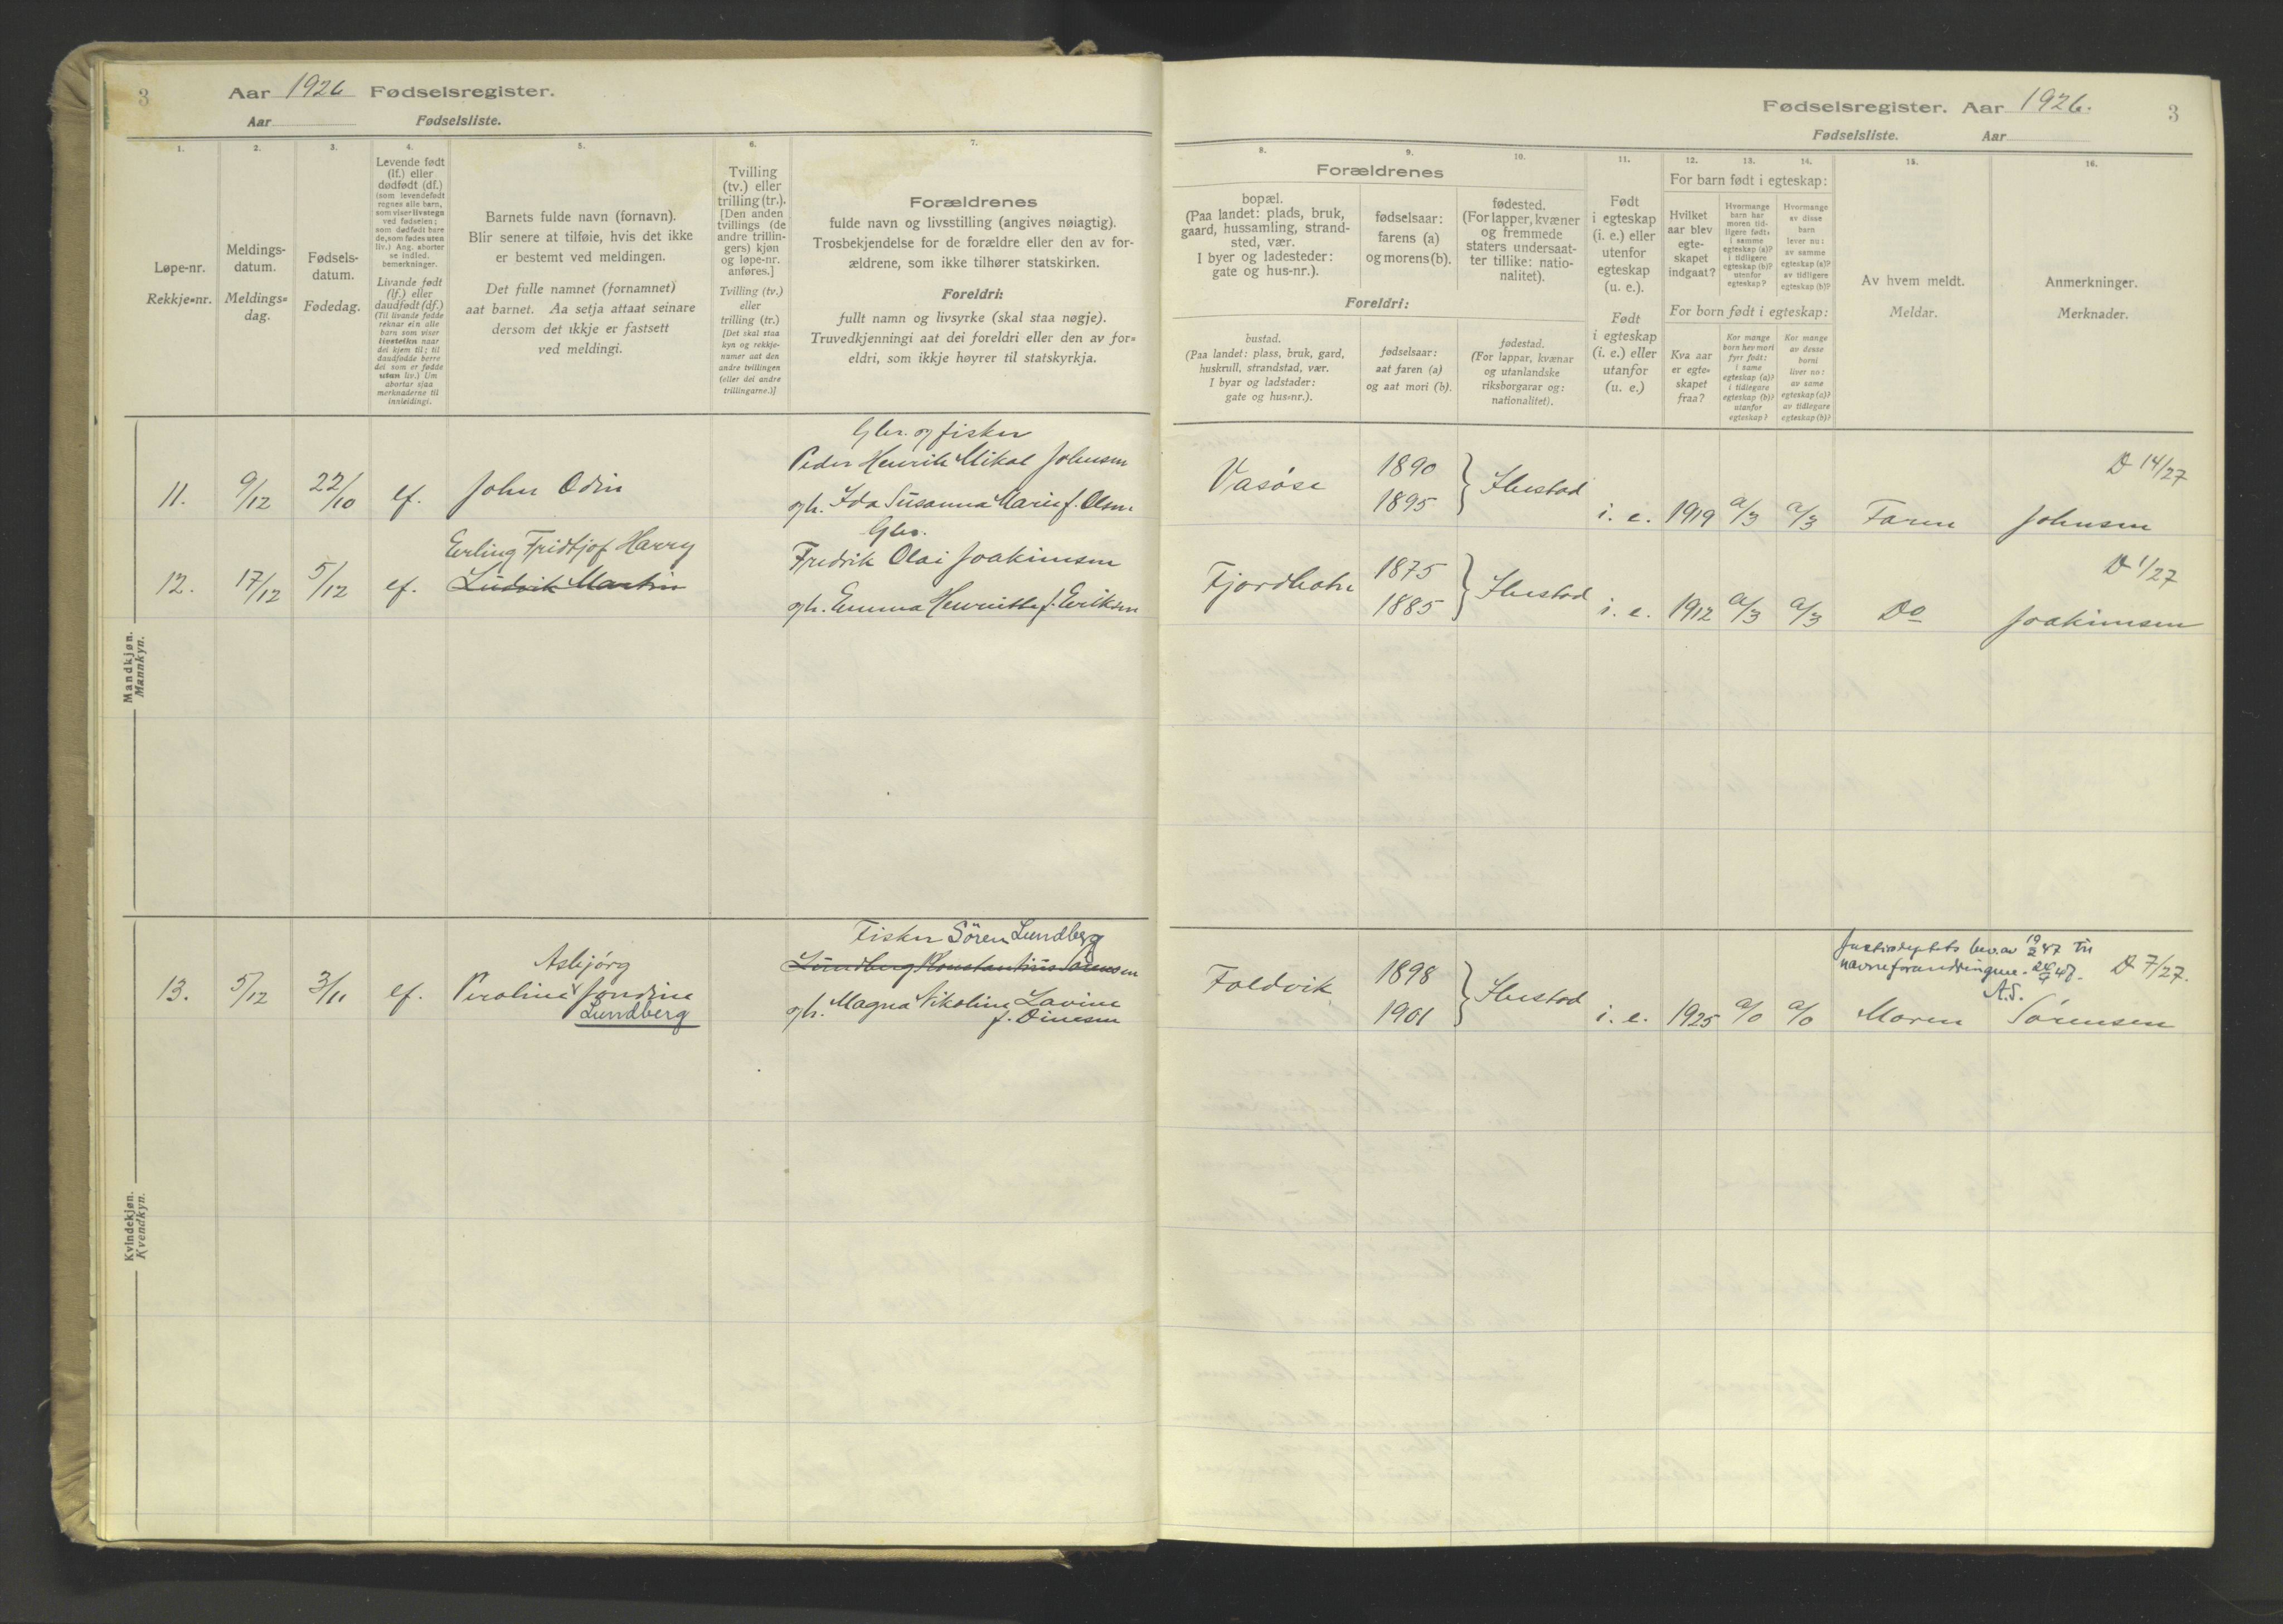 3
Aar 1926 Fødselsregister.
Aar Fødselsliste.
1.
Løpe-nr.
Rekkje=nr.
2.
Meldings-
datum.
Meldings=
dag.
3.
Fødsels-
datum.
Fødedag.
4.
Levende født
(lf.) eller
dødfødt (df.)
(som levendefødt
regnes alle barn,
som viser livstegn
ved fødselen;
som dødfødt bare
de, som fødes uten
liv.) Ang. aborter
se indled.
bemerkninger.
Livande født
(lf.) eller
daudfødt (df.)
(Til livande fødde
reknar ein alle
barn som viser
livsteikn naar
dei kjem til; til
daudfødde berre
dei som er fødde
utan liv.) Um
abortar sjaa
merknaderne til
innleidingi.
5.
Barnets fulde navn (fornavn).
Blir senere at tilføie, hvis det ikke
er bestemt ved meldingen.
Det fulle namnet (fornamnet)
aat barnet. Aa setja attaat seinare
dersom det ikkje er fastsett
ved meldingi.
6.
Tvilling
(tv.) eller
trilling (tr.).
[Den anden
tvillings (de
andre trillin-
gers) kjøn
og løpe-nr.
anføres.]
Tvilling (tv.)
eller
trilling (tr.)
[Det skal staa
kyn og rekkje-
numer aat den
andre tvillingen
(eller dei andre
trillingarne.)]
7.
Forældrenes
fulde navn og livsstilling (angives nøiagtig).
Trosbekjendelse for de forældre eller den av for-
ældrene, som ikke tilhører statskirken.
Foreldri:
fullt namn og livsyrke (skal staa nøgje).
Truvedkjenningi aat dei foreldri eller den av for=
eldri, som ikkje høyrer til statskyrkja.
Mandkjøn.
Mannkyn.
11. 9/12 22/10 lf. John Odin
Gbr. og fisker
Peder Henrik Mikal Johnsen
og h. Ida Susanna Marie f. Olsen.
12. 17/12 5/12 lf.
Erling Fridtjof Harry
Ludvik Martin
Gbr.
Fredrik Olai Joakimsen
og h. Emma Henriette f. Eriksen
Kvindekjøn.
Kvendkyn.
13. 5/12 3/11 lf.
Asbjørg
Peroline Jondine
Lundberg
Fisker Sören Lundberg
Lundberg Konstantinus Sørensen
og h. Magna Nikoline Lavine
f. Dinesen
Fødselsregister. Aar 1926.
3
Fødselsliste. Aar
Forældrenes
8.
bopæl.
(Paa landet: plads, bruk,
gaard, hussamling, strand-
sted, vær.
I byer og ladesteder:
gate og hus-nr.).
9.
fødselsaar:
farens (a)
og morens (b).
10.
fødested.
(For lapper, kvæner
og fremmede
staters undersaat-
ter tillike: natio-
nalitet).
Foreldri:
bustad.
(Paa landet: plass, bruk, gard,
huskrull, strandstad, vær.
I byar og ladstader:
gate og hus=nr.).
fødselsaar:
aat faren (a)
og aat mori (b).
fødestad.
(For lappar, kvænar
og utanlandske
riksborgarar og:
nationalitet).
11.
Født
i egteskap
(i. e.) eller
utenfor
egteskap
(u. e.).
Født
i egteskap
(i. e.) eller
utanfor
(u. e.)
For barn født i egteskap:
12.
Hvilket
aar blev
egte-
skapet
indgaat?
13.
Hvormange
barn har
moren tid-
ligere født:
i samme
egteskap (a)?
i tidligere
egteskap (b)?
utenfor
egteskap?
14.
Hvormange
av disse
barn
lever nu:
av samme
egteskap (a)?
av tidligere
egteskap (b)?
For born født i egteskap:
Kva aar
er egte-
skapet
fraa?
Kor mange
born hev mori
fyrr født:
i same
egteskap (a)?
i tidlegare
egteskap (b)?
utanfor
egteskap?
Kor mange
av desse
borni
liver no:
av same
egteskap (a)?
av tidlegare
egteskap (b)?
15.
Av hvem meldt.
Meldar.
16.
Anmerkninger.
Merknader.
Vasøse 1890 1895 Ibestad i. e. 1919 a/3 a/3 Faren Johnsen D 14/27
Fjordbotn 1875 1885 Ibestad i. e. 1912 a/3 a/3 Do Joakimsen D 1/27
Justisdeptets bev. av 19/2 47 til
navneforandringene. 24/4 47.
A.S.
D 7/27.
Foldvik 1898 1901 Ibestad i. e. 1925 a/0 a/0 Moren Sørensen